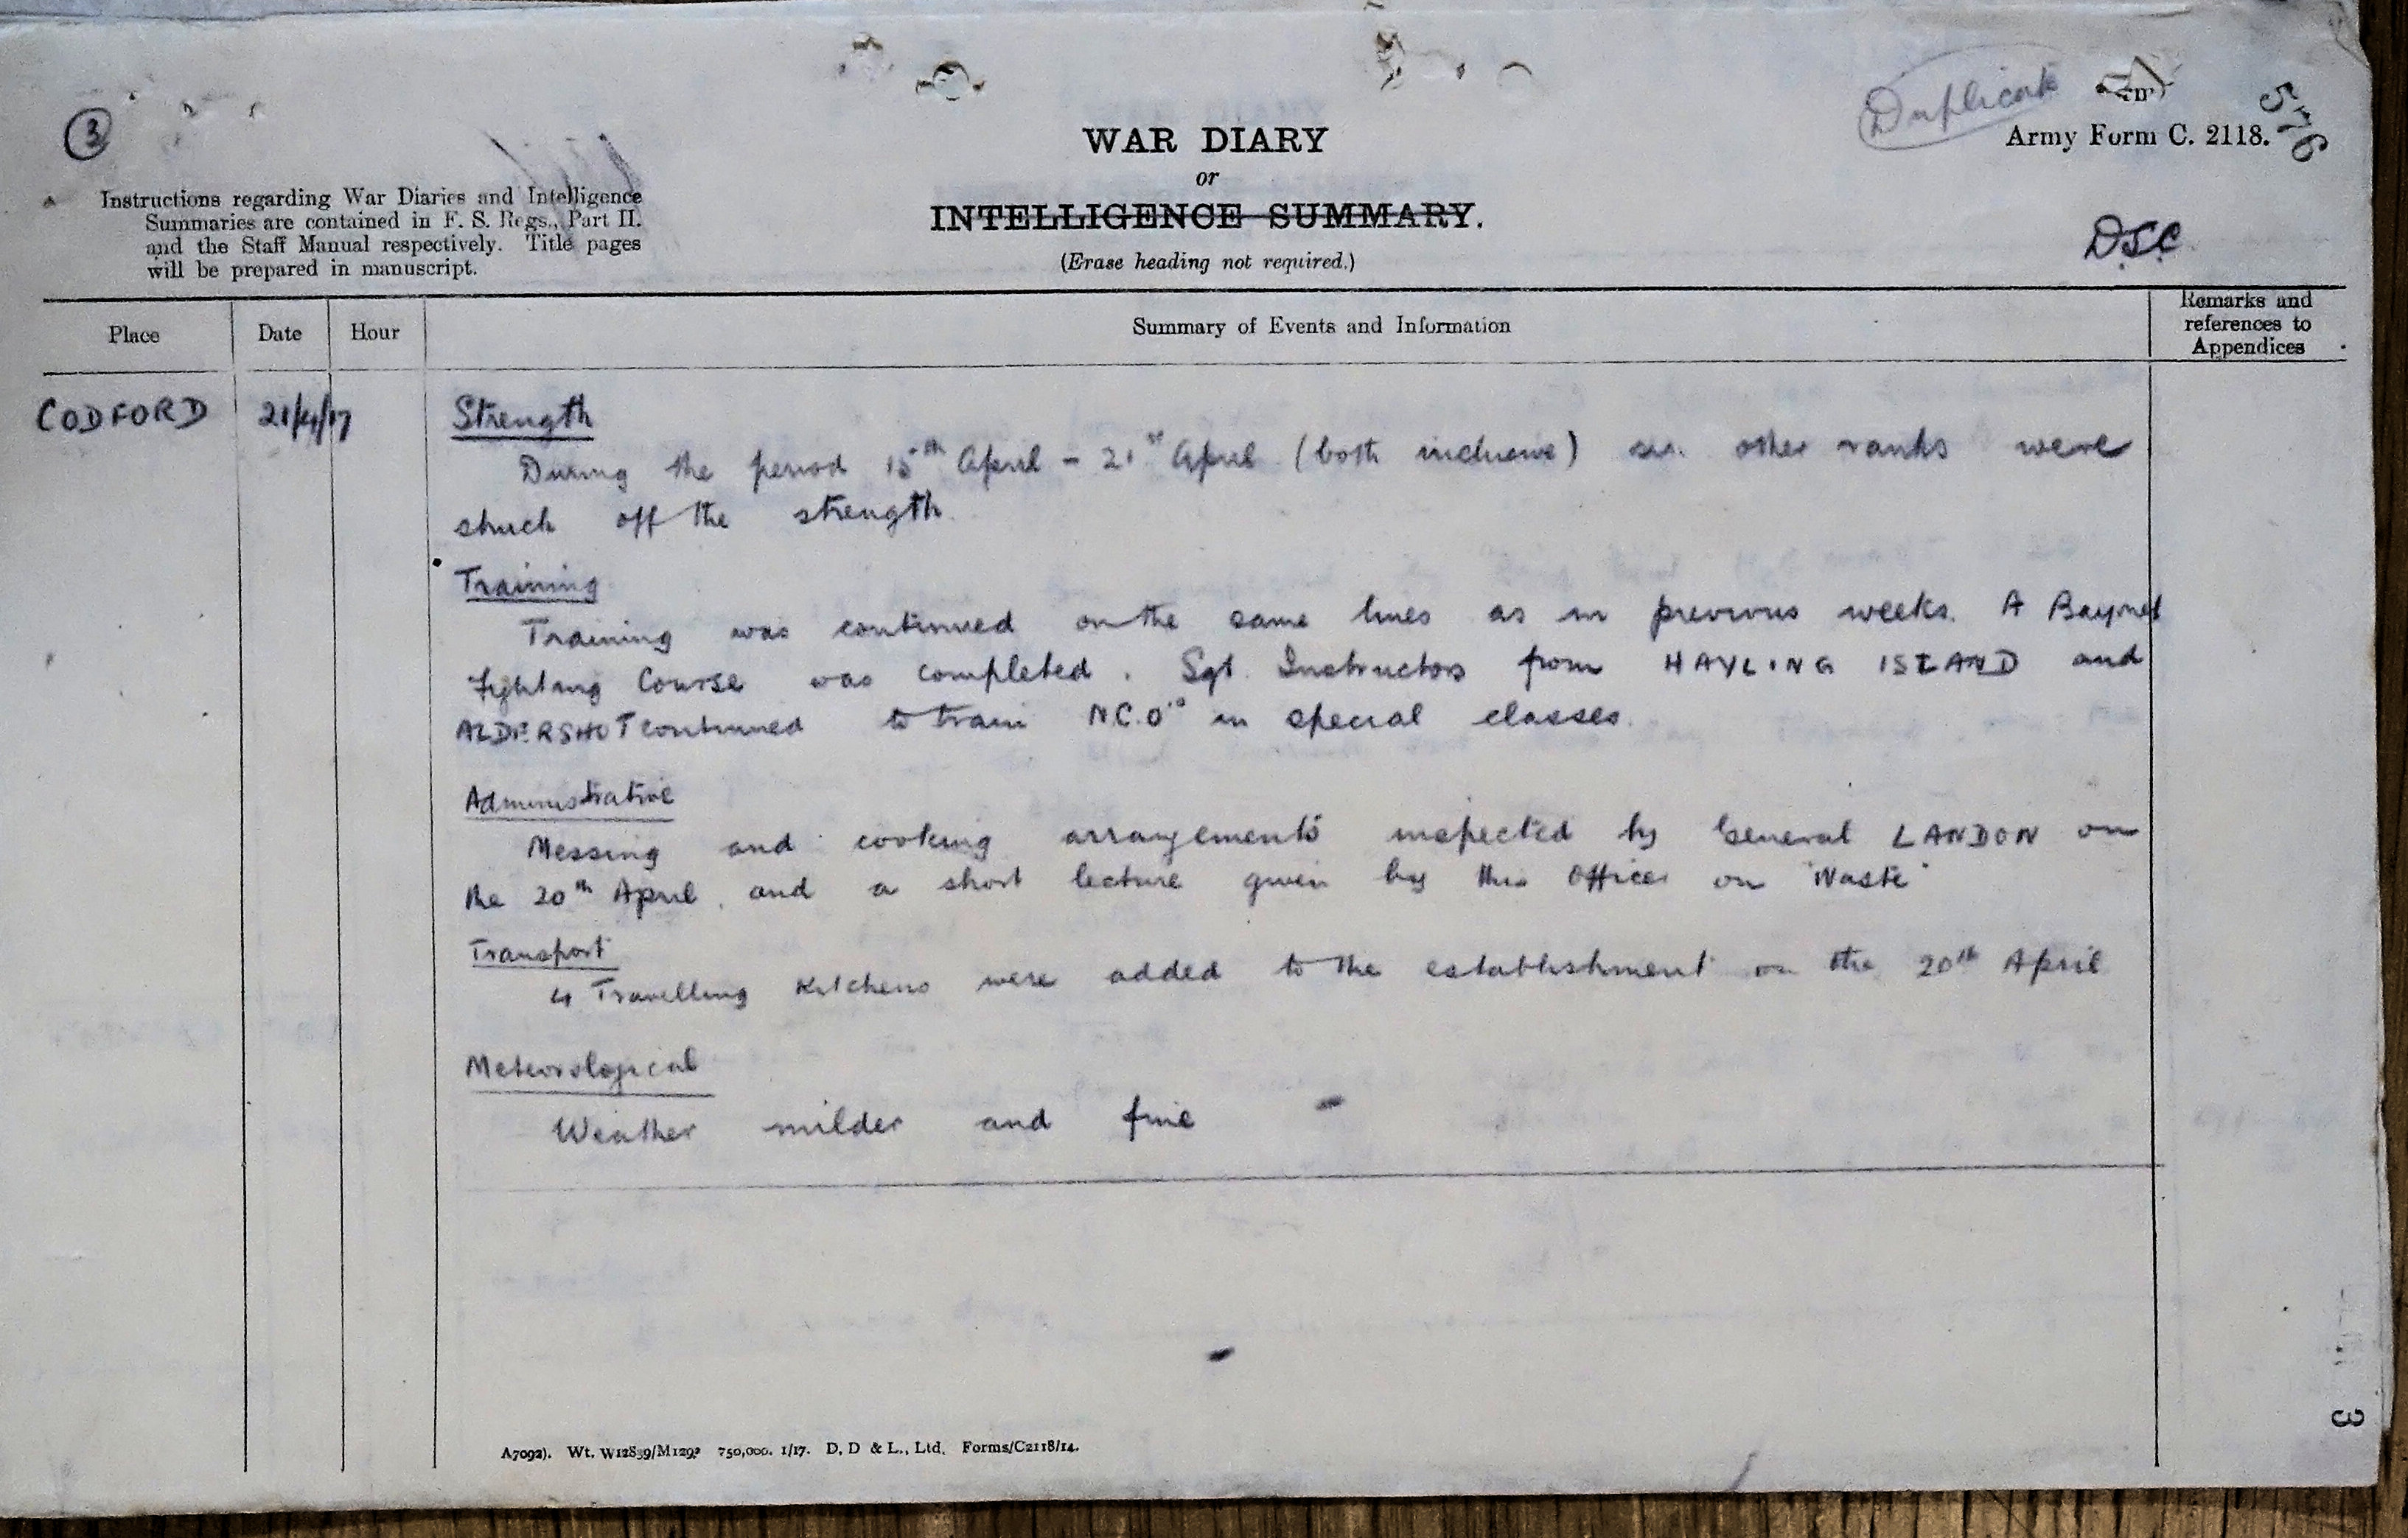 3
Duplicate
576
WAR DIARY
or
INTELLIGENCE SUMMARY.
(Erase heading not required.)
Army Form C. 2118.
Instructions regarding War Diaries and Intelligence
Summaries are contained in F. S. Regs., Part II.
and the Staff Manual respectively. Title pages
will be prepared in manuscript.
Place
Date
Hour
Summary of Events and Information
Remarks and
references to
Appendices
CODFORD
21/4/17
Strength
During the period 15th April - 21st April (both inclusive) six other ranks were
struck off the strength
Training
Training was continued on the same lines as in previous weeks. A Bayonet
Fighting Course was completed. Sgt. Instructors from HAYLING ISLAND and
ALDERSHOT continued to train N.C.O's in special classes.
Administrative
Messing and cooking arrangements inspected by General LANDON on
the 20th April, and a short lecture given by this Officer on "Waste"
Transport
4 Travelling Kitchens were added to the establishment on the 20th April
Meteorological
Weather milder and fine
750,000. 1/17. D, D & L., Ltd. Forms/C2118/14.
3